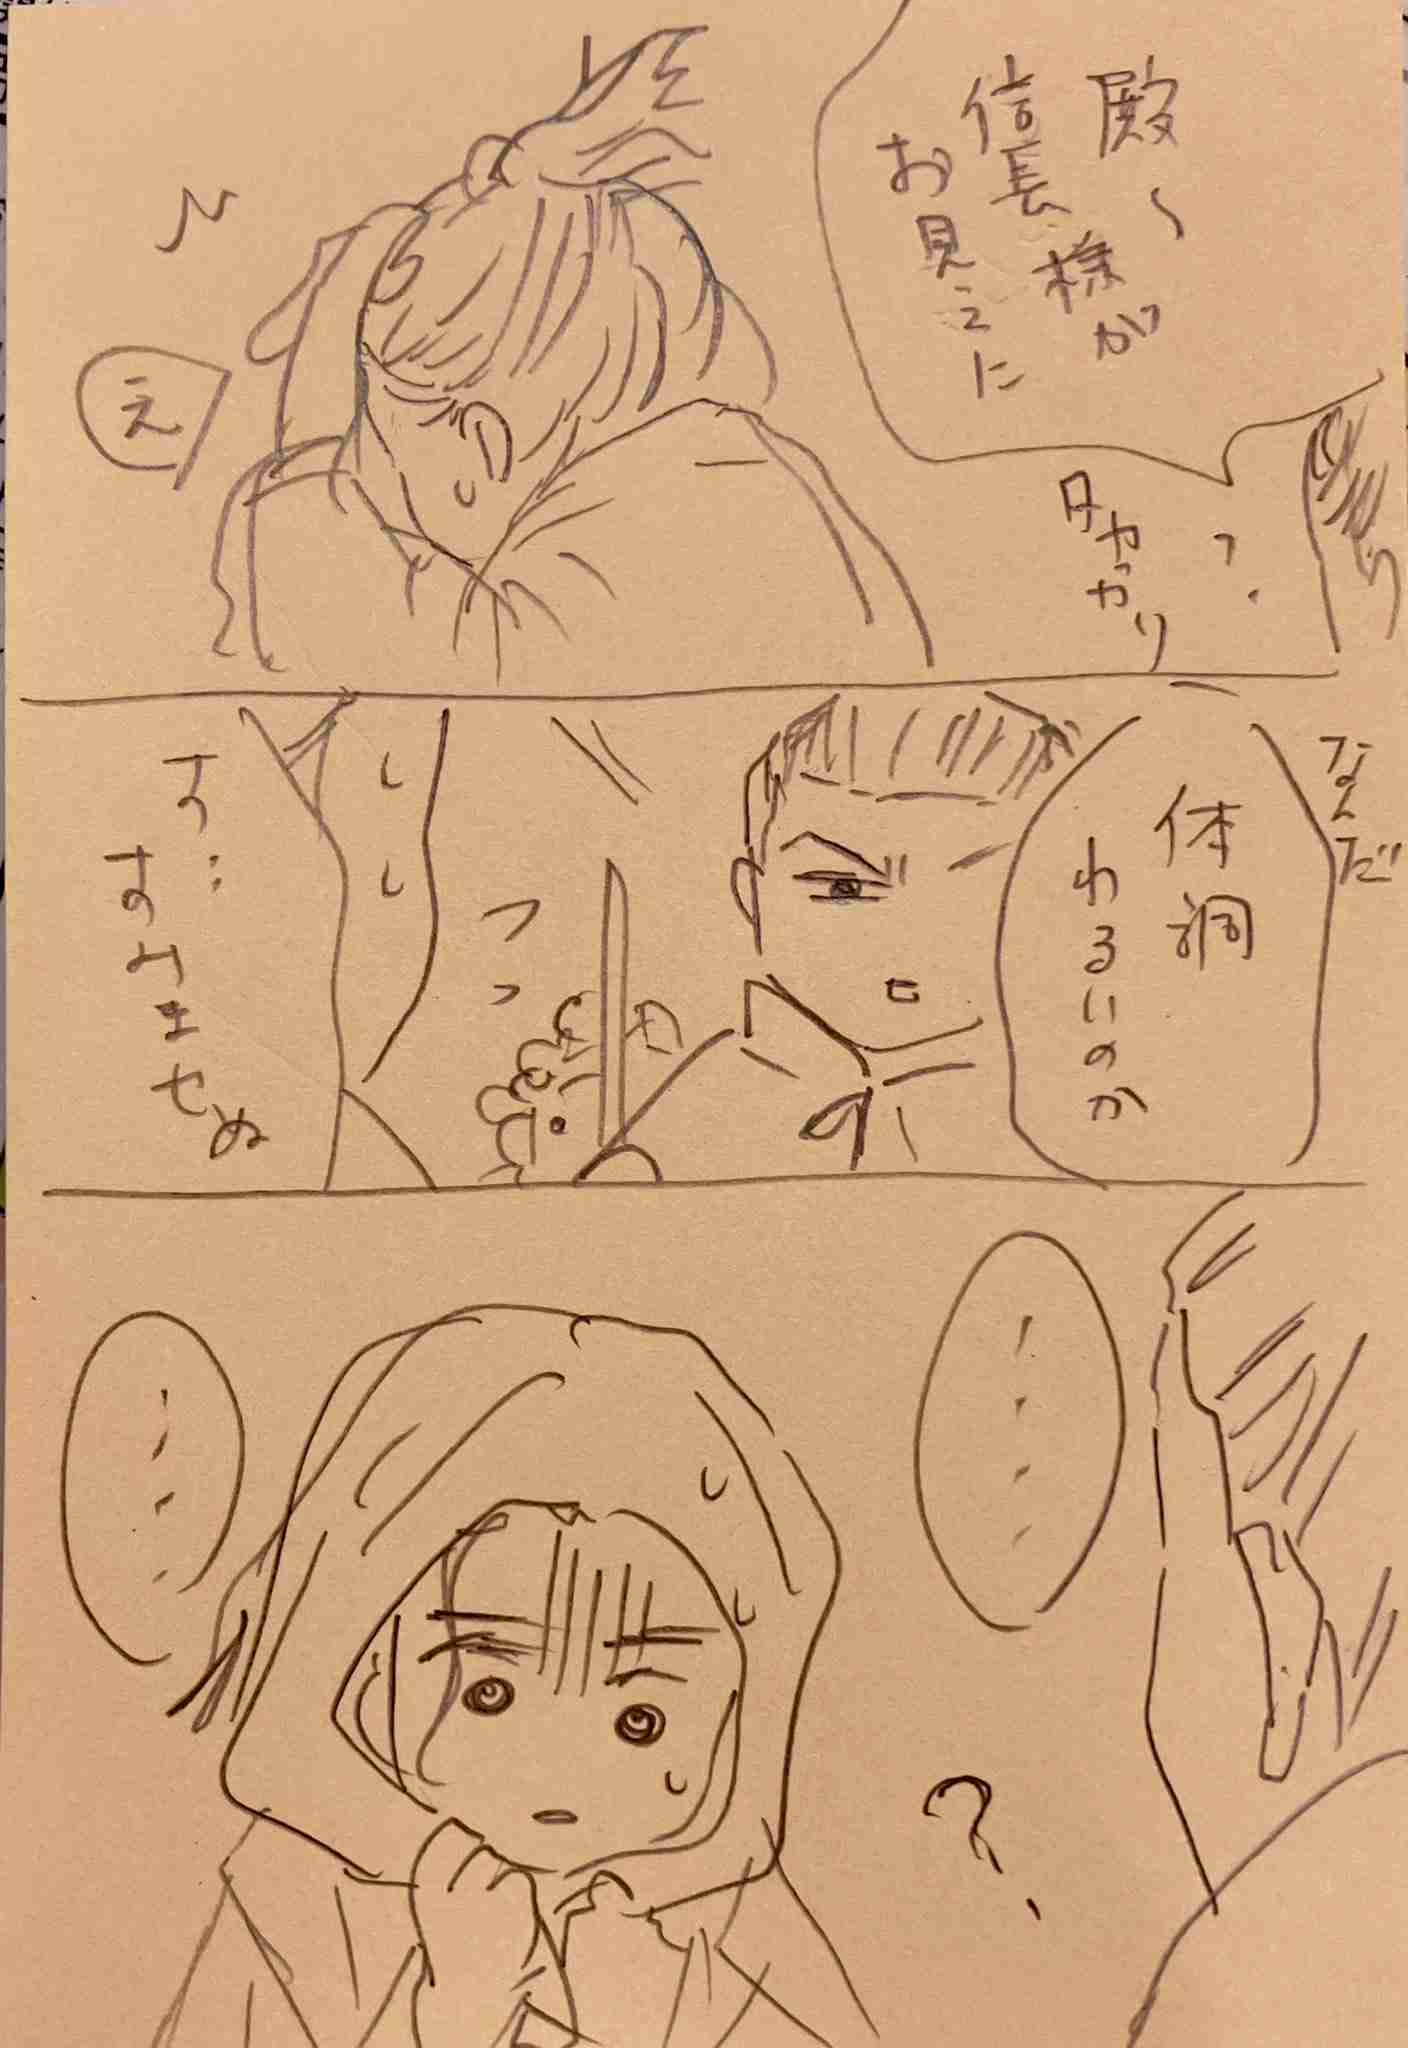 殿～
信長様が
お見えに
？
え
なんだ
体調
わるいのか
す…
すみませぬ
・・・・
？
・・・・